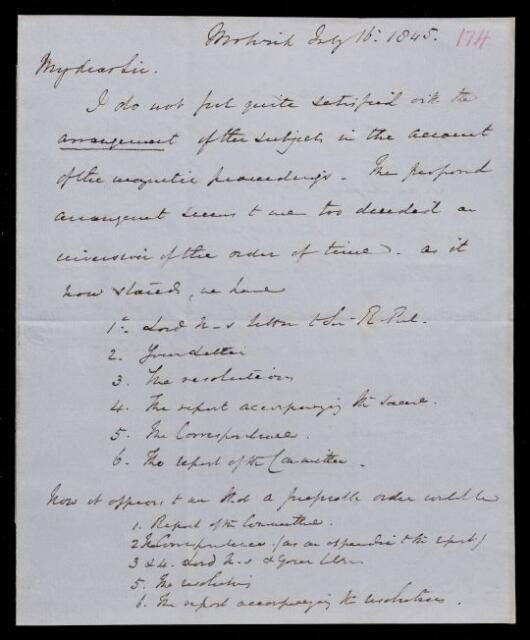 Woolwich July 16th 1845. 174
My dear Sir.
I do not feel quite satisfied with the
arrangement of the subjects in the account
of the magnetic proceedings. The proposed
arrangement seems to me too decided an
inversion of the order of time. As it
now stands, we have
1st Lord N-s letter to Sir R. Peel.
2. Your Letter
3. The resolutions
4. The report accompanying the same.
5. The Correspondence.
6. The report of the Committee.
Now it appears to me that a preferable order would be
1. Report of the Committee.
2 The Correspondence (as an appendix to the report)
3 & 4. Lord N-s & Your letters
5. The resolutions
6. The report accompanying the resolutions.